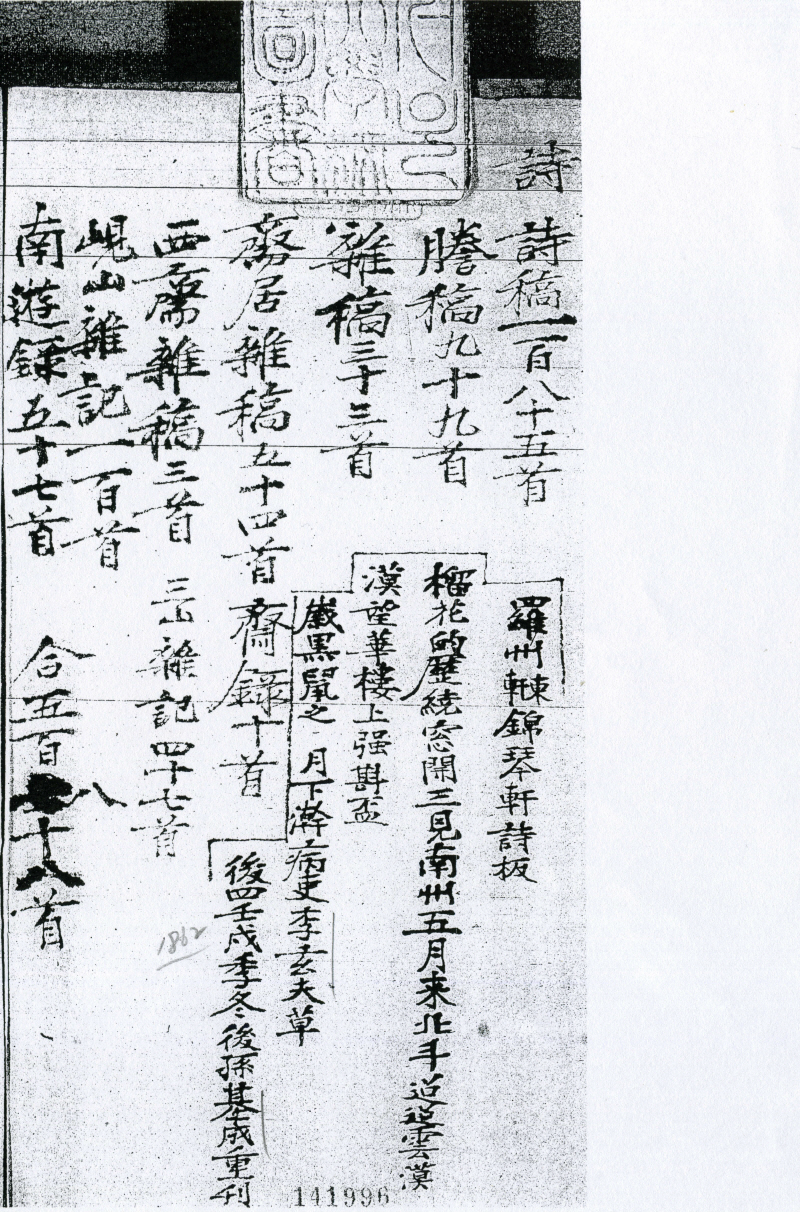 詩
詩稿一百八十五首
謄稿九十九首
雜稿三十三首
齋居雜稿五十四首 齋錄十首
西齋雜稿三首 三山雜記四十七首
峴山雜記一百首
南遊錄五十七首 合五百八十八首
羅州東軒錦琴軒詩板
榴花的歷繞窓開三見南州五月来北斗迢迢雲漠
漠望華樓上强斟盃
歲黑鼠之 月下澣病吏李玄夫草
後四壬戌季冬後孫基成重刊
1862
141996